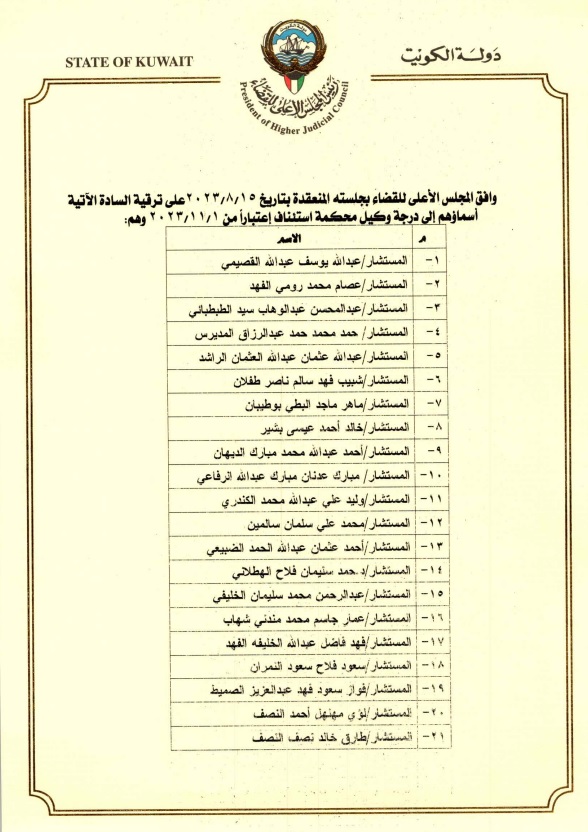 STATE OF KUWAIT
دولة الكويت
رئيس المجلس الأعلى للقضاء
President of Higher Judicial Council
وافق المجلس الأعلى للقضاء بجلسته المنعقدة بتاريخ ٢٠٢٣/٨/١٥ على ترقية السادة الآتية
أسماؤهم إلى درجة وكيل محكمة استئناف إعتباراً من ٢٠٢٣/١١/١ وهم:
م الاسم
١- المستشار/عبدالله يوسف عبدالله القصيمي
٢- المستشار/عصام محمد رومي الفهد
٣- المستشار/عبدالمحسن عبدالوهاب سيد الطبطبائي
٤- المستشار/ حمد محمد حمد عبدالرزاق المديرس
٥- المستشار/عبدالله عثمان عبدالله العثمان الراشد
٦- المستشار/شبيب فهد سالم ناصر طفلان
٧- المستشار/ماهر ماجد البطي بوطيبان
٨- المستشار/خالد أحمد عيسى بشير
٩- المستشار/أحمد عبدالله محمد مبارك الديهان
١٠- المستشار/ مبارك عدنان مبارك عبدالله الرفاعي
١١- المستشار/وليد علي عبدالله محمد الكندري
١٢- المستشار/محمد علي سلمان سالمين
١٣- المستشار/أحمد عثمان عبدالله الحمد الضبيعي
١٤- المستشار/د.حمد سليمان فلاح الهطلاني
١٥- المستشار/عبدالرحمن محمد سليمان الخليفي
١٦- المستشار/عمار جاسم محمد مندني شهاب
١٧- المستشار/فهد فاضل عبدالله الخليفه الفهد
١٨- المستشار/سعود فلاح سعود النمران
١٩- المستشار/فواز سعود فهد عبدالعزيز الصميط
٢٠- المستشار/لؤي مهلهل أحمد النصف
٢١- المستشار/طارق خالد نصف النصف